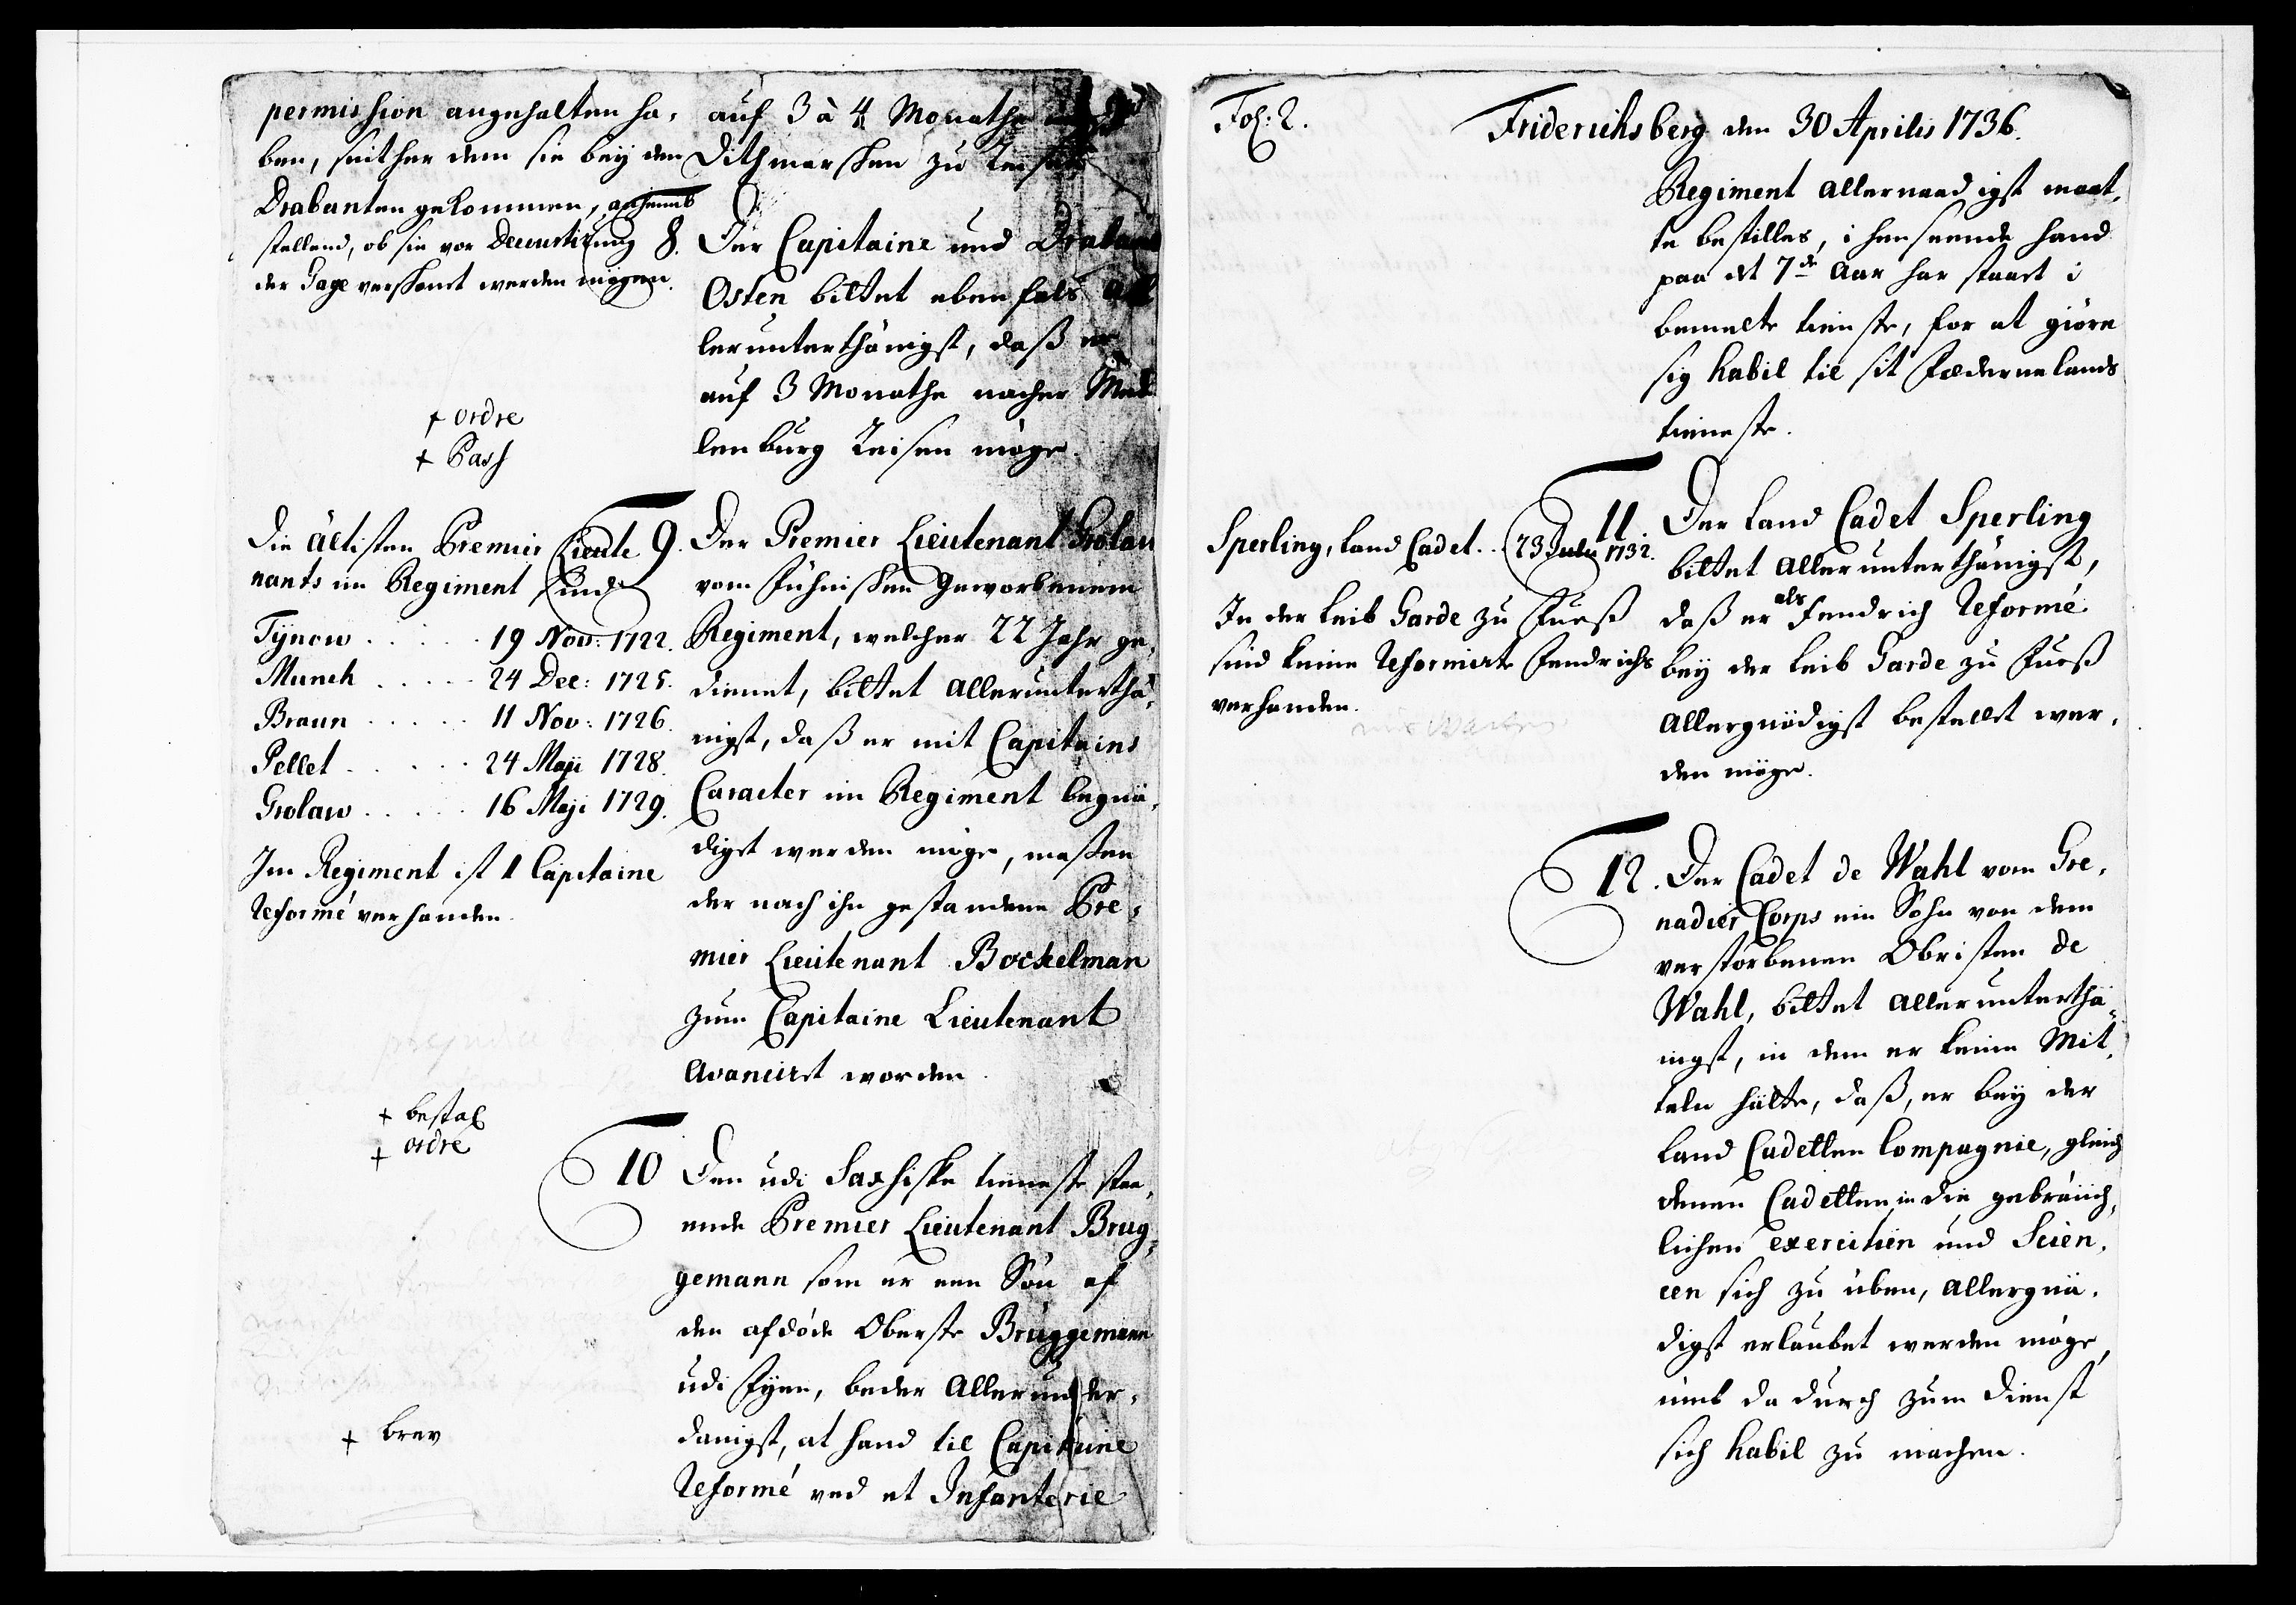 permission angehalten ha,
ben, seither dem sie bey den
Drabanten gekommen, anheimb
stellend, ob sie vor Decourtirung
der Gage verschont werden mögen.
+ ordre
+ Pass
Die ältisten Premier Lieute
nants im Regiment sind
Tÿnow . . . . . 19 Nov: 1722.
Munch . . . . . 24 Dec: 1725.
Braun . . . . . 11 Nov: 1726.
Pellet . . . . . 24 Maji 1728.
Grolaw . . . . . 16 Maji 1729.
Im Regiment ist 1 Capitaine
Reformé verhanden.
+ bestal
+ ordre
+ brev
auf 3 à 4 Monathe
Dithmarschen zu
8. Der Capitaine und Drabant
Osten bittet ebenfals All
lerunterthänigst, daß er
auf 3 Monathe nacher Meck
lenburg Reisen möge.
9. Der Premier Lieutenant Grolau
vom Fühnischen Geworbenem
Regiment, welcher 22 Jahr ge,
dienet, bittet Allerunterthä,
nigst, daß er mit Capitains
Caracter im Regiment begnä,
digst werden möge, maßen
der nach ihn gestandene Pre,
mier Lieutenant Bockelman
zum Capitaine Lieutenant
Avancirt worden.
10 Den udi Saxsiske tieneste staa,
ende Premier Lieutenant Brug,
gemann som er een Søn af
den afdøde Oberste Bruggemann
udi Fyen, beder Allerunder,
danigst, at hand til Capitaine
Reformé ved et Infanterie
Fol: 2.
Friderichsberg den 30 Aprilis 1736.
Regiment allernaadigst maat,
te bestilles, i henseende hand
paa det 7de Aar har staaet i
bemelte tieneste, for at giøre
sig habil til sit Fædernelands
tieneste.
Sperling, land Cadet . . 23 Julii 1732.
In der Leib Garde zu Fueß
sind keine Reformirte Fendrichs
verhanden.
11. Der Land Cadet Sperling
bittet Allerunterthänigst,
daß er als Fendrich Reformé
bey der Leib Garde zu Fueß
Allergnädigst bestellet wer,
den möge.
12. Der Cadet de Wahl vom Gre,
nadier Corps ein Sohn von dem
verstorbenen Obristen de
Wahl, bittet Allerunterthä,
nigst, in dem er keine Mit,
teln hätte, daß er bey der
Land Cadetten Compagnie, gleich
denen Cadetten in die gebräuch,
lichen exercitien und Scien,
cen sich zu üben, Allergnä,
digst erlaubet werden möge,
umb dadurch zum Dienst
sich habil zu machen.